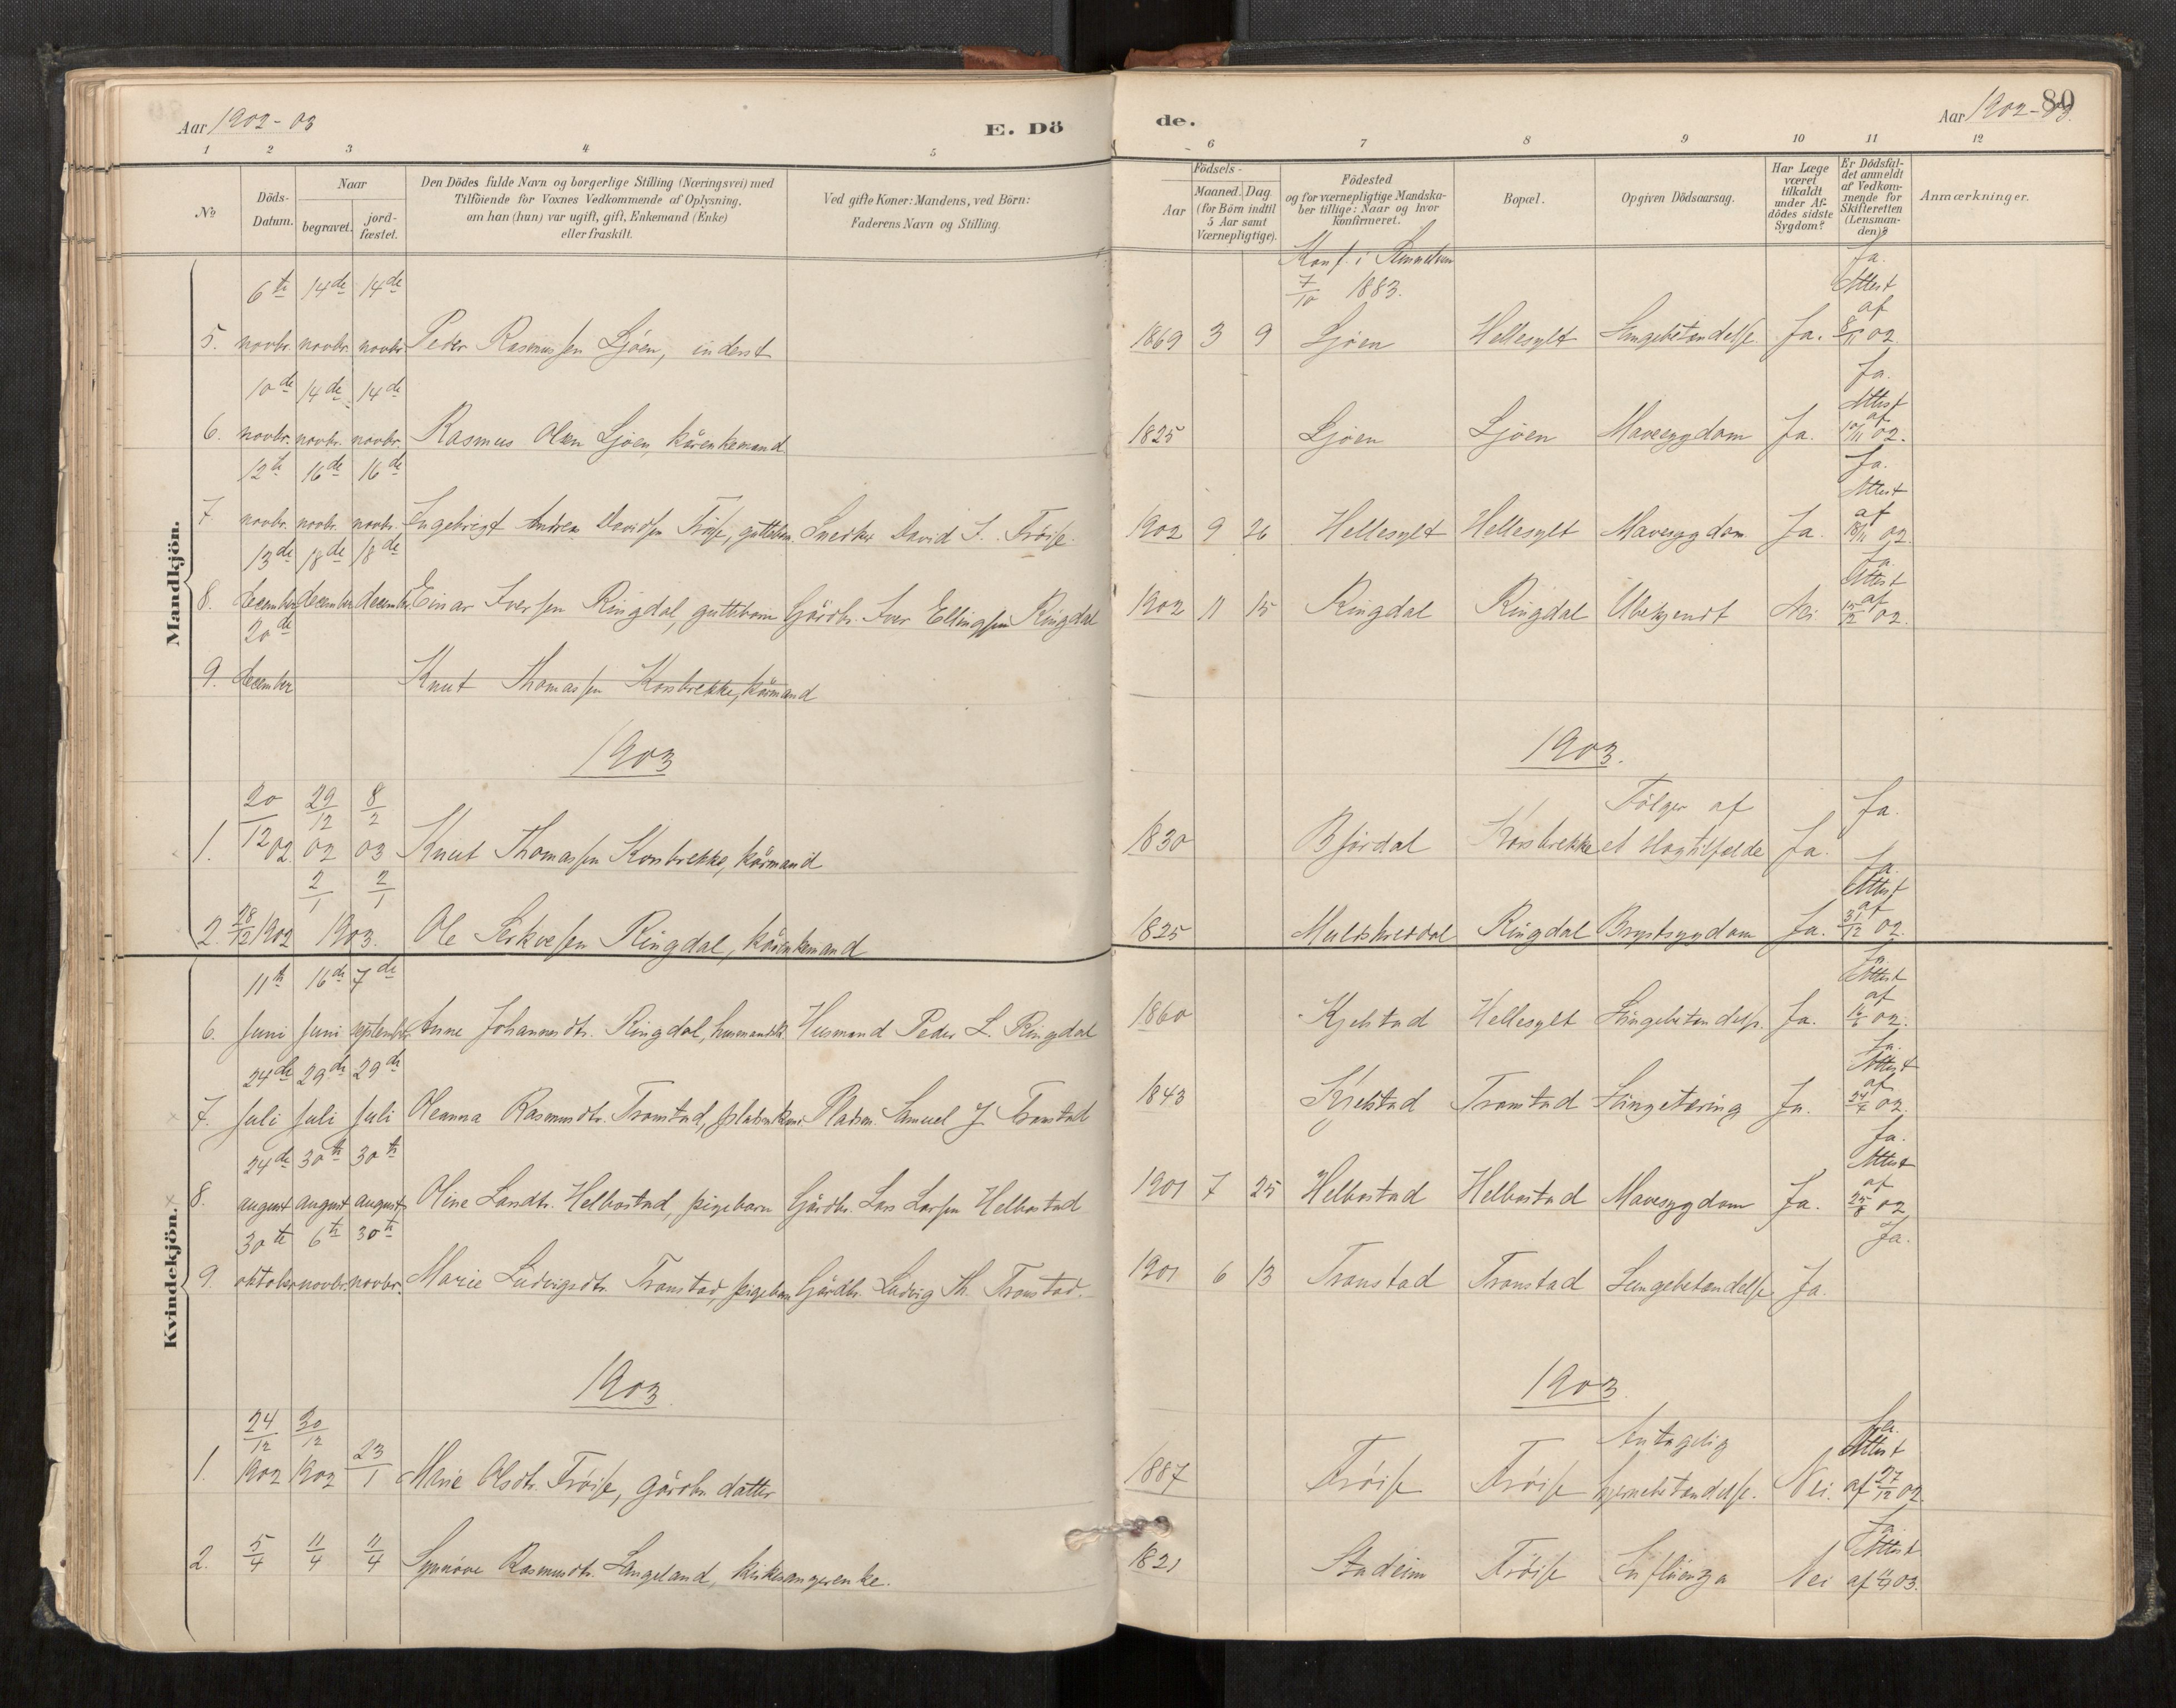 Aar 1902-03
E. Dö
de.
Aar 1902-03.
80
1 2 3 4 5 6 7 8 9 10 11 12
No
Döds-Datum.
Naar
begravet.
jord-fæstet.
Den Dödes fulde Navn og borgerlige Stilling (Næringsvei) med
Tilföiende for Voxnes Vedkommende af Oplysning,
om han (hun) var ugift, gift, Enkemand (Enke)
eller fraskilt.
Ved gifte Koner: Mandens, ved Börn:
Faderens Navn og Stilling.
Födsels-
Aar
Maaned.
Dag
(for Börn indtil
5 Aar samt
Værnepligtige).
Födested
og for værnepligtige Mandska-
ber tillige: Naar og hvor
konfirmeret.
Bopæl.
Opgiven Dödsaarsag.
Har Læge
været
tilkaldt
under Af-
dödes sidste
Sygdom?
Er Dödsfal-
det anmeldt
af Vedkom-
mende for
Skifteretten
(Lensman-
den)?
Anmærkninger.
Mandkjön.
6te 14de 14de Konf. i
7/10 1883. Ja. Attest af
5. novbr. novbr. novbr. Peder Rasmussen Ljöen, inderst 1869 3 9 Ljöen Hellesylt Lungebetændelse. Ja. 8/11 02.
10de 14de 14de Ja. Attest af
6. novbr. novbr. novbr. Rasmus Olsen Ljöen, kårenkemand 1825 Ljöen Ljöen Mavesygdom Ja. 10/11 02.
12te 16de 16de Ja. Attest af
7. novbr. novbr. novbr. Ingebrigt Andreas Davidsen Fröise, guttebarn. Snedker David I. Fröise. 1902 9 26 Hellesylt Hellesylt Mavesygdom Ja. 02.
13de 18de 18de Ja. Attest af
8. december december december Einar Iversen Ringdal, guttebarn Gårdbr. Iver Ellingsen Ringdal 1902 11 15 Ringdal Ringdal Ubekjendt Nei 15/12 02.
20de
9. december Knut Thomassen Korsbrekke, kårmand
1903 1903.
20/12 29/12 8/2 Fölger af Ja.
1. 02 02 03 Knut Thomassen Korsbrekke, kårmand 1830 Björdal Korsbrekke et slagtilfelde Ja.
2/1 2/1 Ja. Attest af
2. 28/12 1902 1903. Ole Serkvesen Ringdal, kårenkemand 1825 Ringdal Brystsygdom Ja. 31/12 02.
Kvindekjön.
11te 16de 7de Ja. Attest af
6. juni juni september Anne Johannesdtr. Ringdal, husmandsk. Husmand Peder L. Ringdal 1860 Kjelstad Hellesylt Lungebetændelse. Ja. 16/6 02.
24de 29de 29de Ja. Attest af
7. juli juli juli Oleanna Rasmusdtr. Tronstad, Pladsm. Samuel J. Tronstad 1843 Kjelstad Tronstad Lungetæring Ja. 02.
24de 30te 30te Ja. Attest af
8. august august august Oline Larsdtr. Helbostad, pigebarn Gårdbr. Lars Larsen Helbostad 1901 7 25 Helbostad Helbostad Mavesygdom Ja. 25/8 02
30te 6te 30te Ja.
9. oktober novbr. novbr. Marie Ludvigsdtr. Tronstad, pigebarn Gårdbr. Ludvig Th. Tronstad. 1901 6 13 Tronstad Tronstad Lungebetændelse Ja.
1903 1903.
24/12 30/12 Antagelig Ja. Attest
1. 1902 1902 23/1 Marie Olsdtr. Fröise, gårdbr. datter 1887 Fröise Fröise hjernebetændelse. Nei. af 27/12 02.
Ja. Attest
2. 5/4 11/4 11/4 Synnöve Rasmusdtr. Langeland, kirkesangerenke. 1821 Stadeim Fröise Influenza Nei af 03.